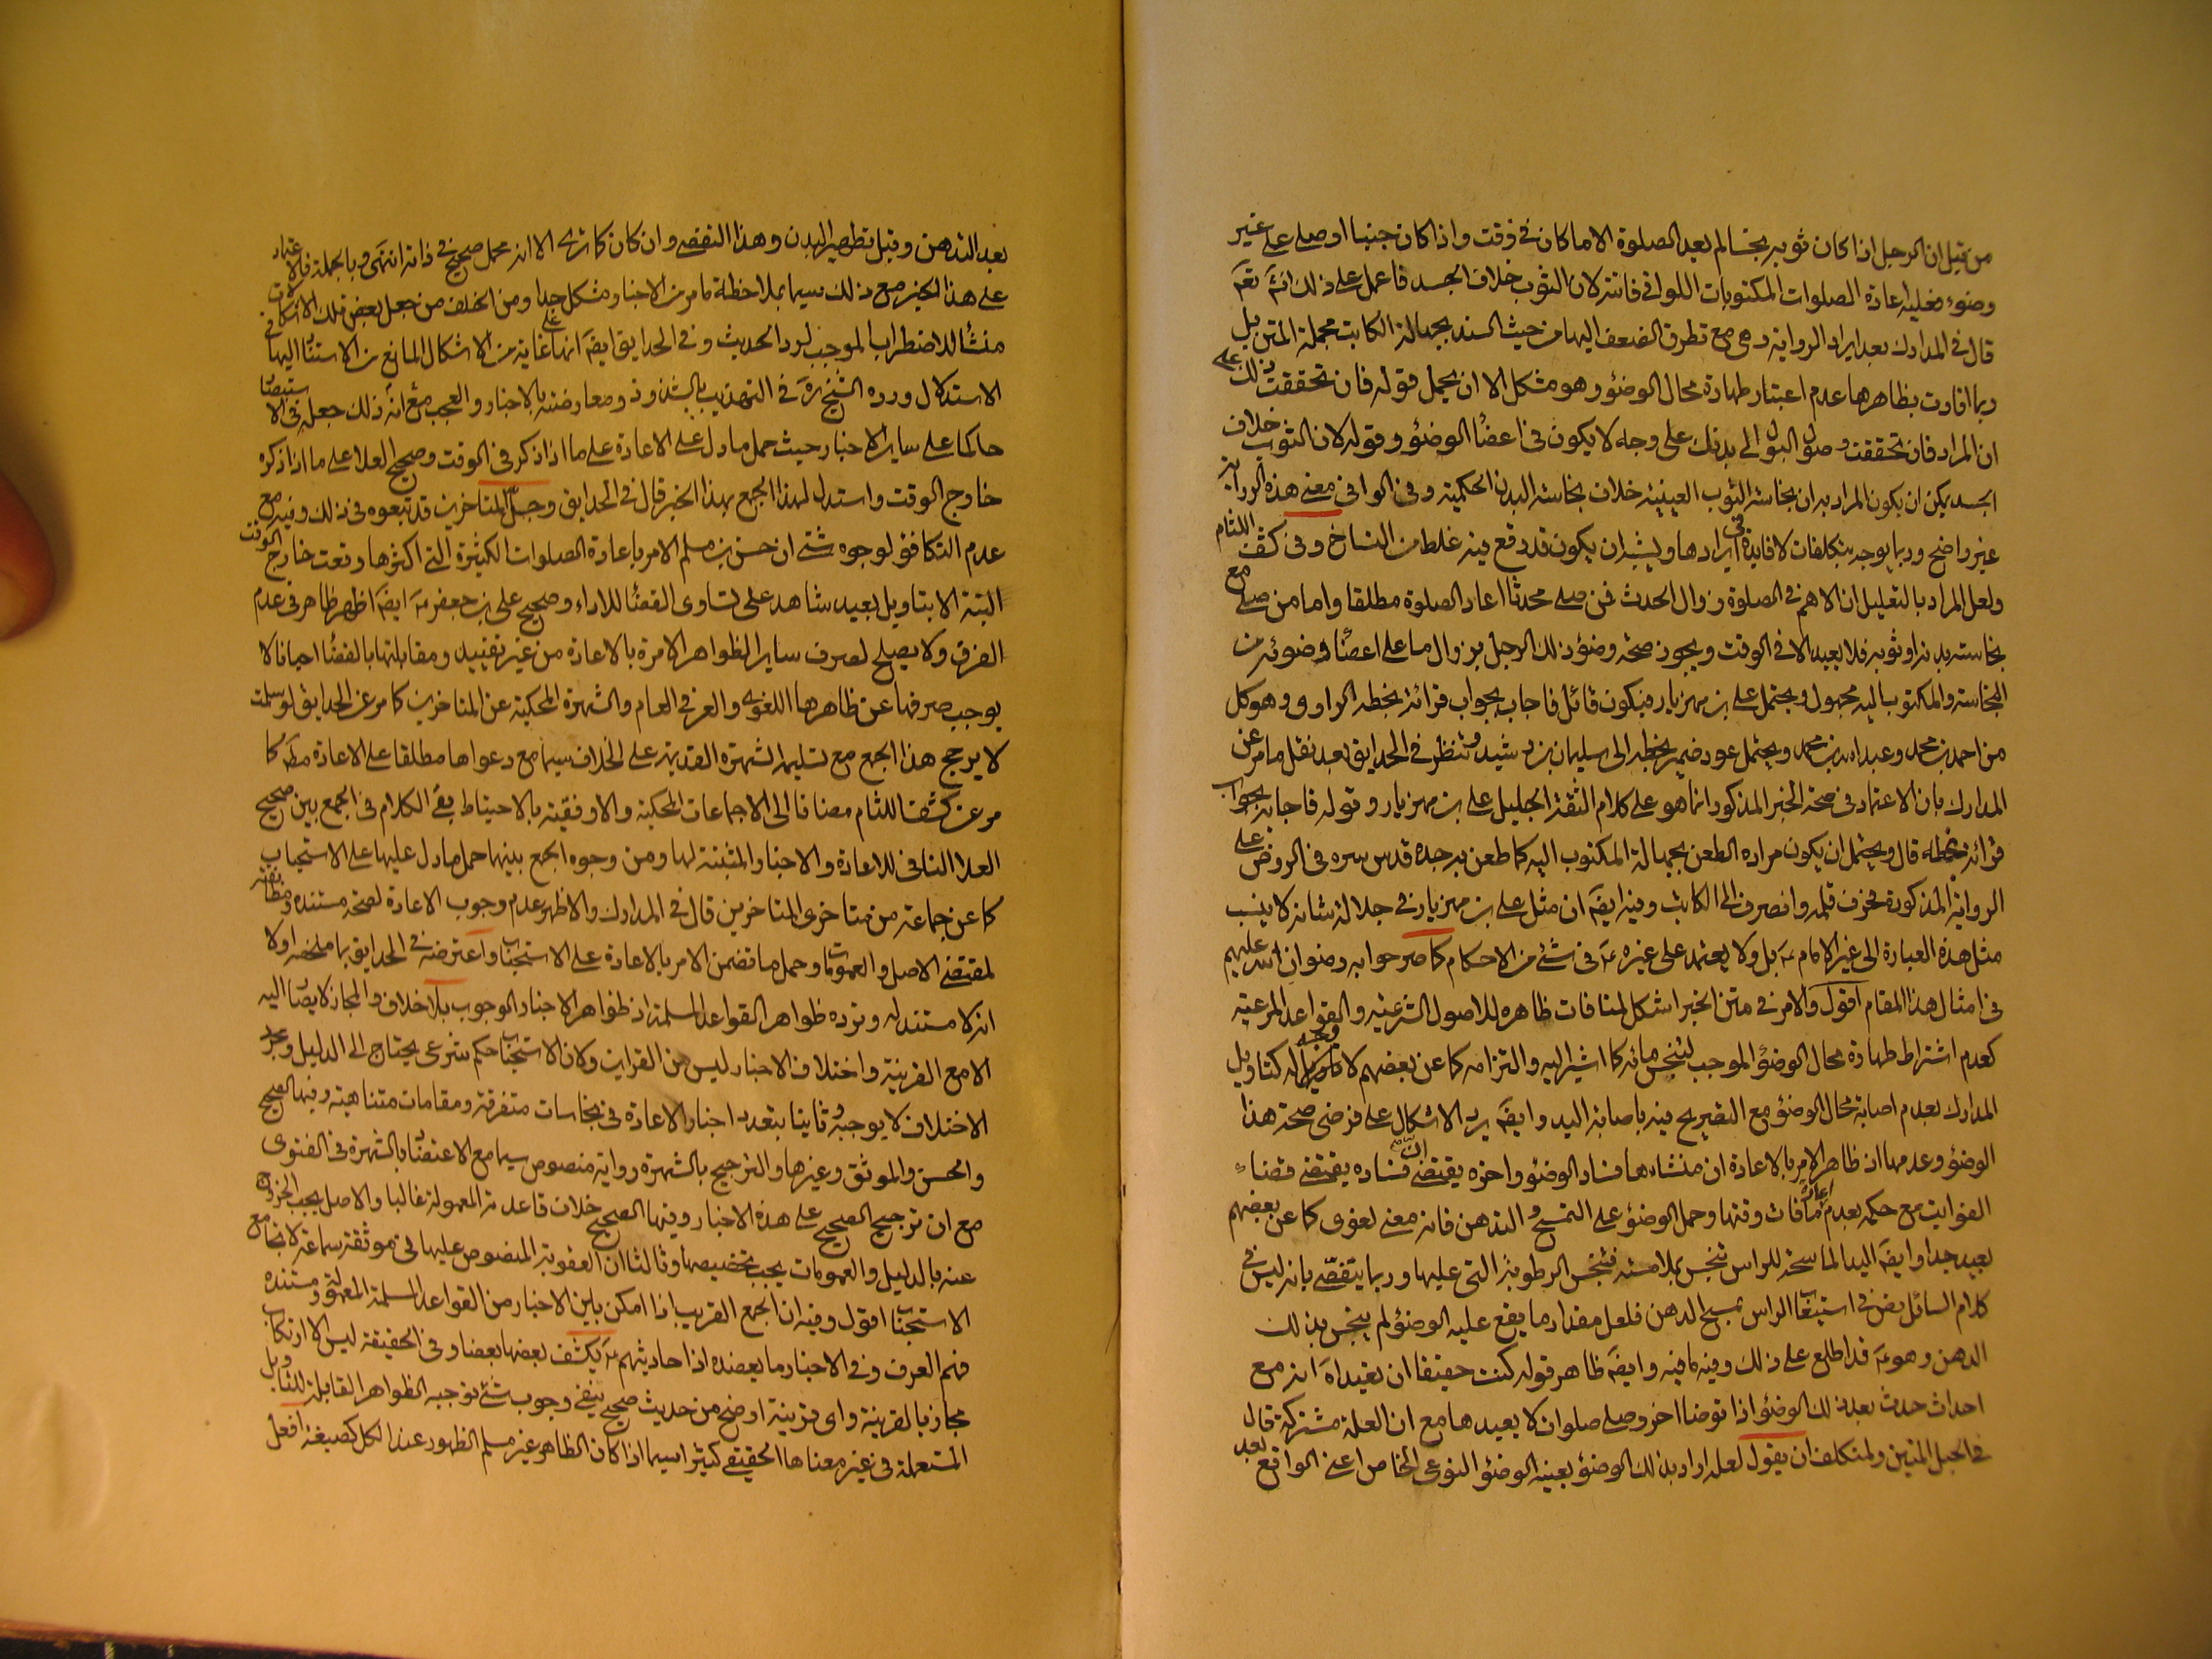 من قبل ان الرجل اذا كان ثوبه نجسا لم يعد الصلوة الا ما كان فى وقت واذا كان جنبا او صلى على غير
وضوء فعليه اعادة الصلوات المكتوبات اللواتى فاتته لان الثوب خلاف الجسد فاعمل على ذلك انش تع
قال فى المدارك بعد ايراد الرواية وهى مع تطرق الضعف اليها من حيث السند بجهالة الكاتب مجملة المتن بل
ربما افادت بظاهرها عدم اعتبار طهارة محال الوضوء وهو مشكل الا ان يحمل قوله فان تحققت ذلك على
ان المراد فان تحققت وصول البول الى بدنك على وجه لا يكون فى اعضا الوضوء وقوله لان الثوب خلاف
الجسد يمكن ان يكون المراد به ان نجاسة الثوب العينية خلاف نجاسة البدن الحكمية وفى الوافى معنى هذه الرواية
غير واضح وربما يوجه بتكلفات لا فايدة فى ايرادها ويشبه ان يكون قد وقع فيه غلط من النساخ وفى كشف اللثام
ولعل المراد بالتعليل ان الاهم فى الصلوة زوال الحدث فمن صلى محدثا اعاد الصلوة مطلقا واما من صلى مع
نجاسة بدنه او ثوبه فلا يعيد الا فى الوقت ويجوز صحة وضوء ذلك الرجل بزوال ما على اعضا وضوئه من
النجاسة والمكتوب اليه مجهول ويحتمل على بن مهزيار فيكون قائل فاجاب بجواب قرائته بخطه الراوى وهو كل
من احمد بن محمد وعبد الله بن محمد ويحتمل عود ضمير بخطه الى سليمان بن رشيد وتنظر فى الحدايق بعد نقل ما مر عن
المدارك بان الاعتماد فى صحة الخبر المذكور انما هو على كلام الثقة الجليل على بن مهزيار وقوله فاجابه بجواب
قرائته بخطه قال ويحتمل ان يكون مراده الطعن بجهالة المكتوب اليه كما طعن به جده قدس سره فى الروض على
الرواية المذكورة فحرف قلمه وانصرف الى الكاتب وفيه ايضا ان مثل على بن مهزيار فى جلالة شانه لا ينسب
مثل هذه العبارة الى غير الامام ع بل ولا يعتمد على غيره ع فى شئ من الاحكام كما صرحوا به رضوان الله عليهم
فى امثال هذا المقام اقول والامر فى متن الخبر اشكل لمنافات ظاهره للاصول الشرعية والقواعد المرعية
كعدم اشتراط طهارة محال الوضوء الموجب لتنجس مائه كما اشير اليه والتزامه كما عن بعضهم لا وجه له كتاويل
المدارك بعدم اصابة محال الوضوء مع التصريح فيه باصابة اليد وايضا يرد الاشكال على فرضى صحة هذا
الوضوء وعدمها اذ ظاهر الامر بالاعادة ان منشاءها فساد الوضوء واخره يقتضى فساده يقتضى قضاء
الفوايت مع حكمه بعدم اعادة ما فات وقتها وحمل الوضوء على التمسح و التدهن فانه معنى لغوى كما عن بعضهم
بعيد جدا وايضا اليد الماسحة للراس تنجس بملامسته فتنجس الرطوبة التى عليها وربما يتفصى بانه ليس فى
كلام السائل نص فى استيعاب الراس بمسح الدهن فلعل مقدار ما يقع عليه الوضوء لم ينجس بذلك
الدهن وهو ع قد اطلع على ذلك وفيه ما فيه وايضا ظاهر قوله كنت حقيقا ان تعيد اه انه مع
احداث حدث بعد ذلك الوضوء اذا توضا اخر وصلى صلوات لا يعيدها مع ان العلة مشتركة قال
فى الحبل المتين ولمتكلف ان يقول لعله اراد بذلك الوضوء بعينه الوضوء النوعى الخاص اعنى الواقع بعد
بعد التدهن وقبل تطهير البدن وهذا التفصى وان كان كما ترى الا انه محمل صحيح فى ذاته انتهى وبالجملة فالاعتماد
على هذا الخبر مع ذلك سيما بملاحظة ما مر من الاخبار مشكل جدا ومن الخلف من جعل بعض تلك الاشكالات
منشأ للاضطراب الموجب لرد الحديث وفى الحدايق ايضا انها على غاية من الاشكال المانع من الاستناد اليها فى
الاستدلال ورده الشيخ ره فى التهذيب بالشذوذ ومعارضته بالاخبار والعجب مع انه ذلك جعله فى الاستبصار
حاكما على ساير الاخبار حيث حمل ما دل على الاعادة على ما اذا ذكر فى الوقت وصحيح العلا على ما اذا ذكره
خارج الوقت واستدل لهذا الجمع بهذا الخبر قال فى الحدايق وجل المتاخرين قد تبعوه فى ذلك وفيه مع
عدم التكافؤ لوجوه شتى ان حسن بن مسلم الامر باعادة الصلوات الكثيرة التى اكثرها وقعت خارج الوقت
البتة الا بتاويل بعيد شاهد على تساوى القضا للاداء وصحيح على بن جعفر ع ايضا اظهر ظاهر فى عدم
الفرق ولا يصلح لصرف ساير الظواهر الامرة بالاعادة من غير تقييد ومقابلتها بالقضا احيانا لا
يوجب صرفها عن ظاهرها اللغوى والعرفى العام والشهرة المحكية عن المتاخرين كما مر عن الحدايق لو سلمت
لا يرجح هذا الجمع مع تسليم الشهرة القديمة على الخلاف سيما مع دعواها مطلقا على الاعادة مطلقا كما
مر عن كشف اللثام مضافا الى الاجماعات المحكية والاوفقية بالاحتياط بقى الكلام فى الجمع بين صحيح
العلا النافى للاعادة والاخبار المثبتة لها ومن وجوه الجمع بينها حمل ما دل عليها على الاستحباب
كما عن جماعة من متاخرى المتاخرين قال فى المدارك والاظهر عدم وجوب الاعادة لصحة مستنده ومطابقته
لمقتضى الاصل والعمومات وحمل ما تضمن الامر بالاعادة على الاستحباب واعترضه فى الحدايق بما ملخصه اولا
انه لا مستند له وترده ظواهر القواعد المسلمة اذ ظواهر الاخبار الوجوب بلا خلاف والمجاز لا يصار اليه
الا مع القرينة واختلاف الاخبار ليس من القراين ولان الاستحباب حكم شرعى يحتاج الى الدليل ومجرد
الاختلاف لا يوجبه وثانيا بتعدد اخبار الاعادة فى نجاسات متفرقة ومقامات متناهية وفيها الصحيح
والحسن والموثق وغيرها والترجيح بالشهرة رواية منصوص سيما مع الاعتضاد بالشهرة فى الفتوى
مع ان ترجيح الصحيح على هذه الاخبار وفيها الصحيح خلاف قاعدته المعمولة غالبا والاصل يجب الخروج
عنه بالدليل والعمومات يجب تخصيصها وثالثا ان العقوبة المنصوص عليها فى موثقة سماعة لا تجامع
الاستحباب اقول وفيه ان الجمع القريب اذا امكن باين الاخبار من القواعد المسلمة المعمولة ومستنده
فهم العرف وفى الاخبار ما يعضده اذ احاديثهم ع يكشف بعضها بعضا وفى الحقيقة ليس الا ارتكاب
مجاز بالقرينة واى قرينة اوضح من حديث صحيح ينفى وجوب شئ توجبه الظواهر القابلة للتاويل
المستعملة فى غير معناها الحقيقى كثيرا سيما اذا كان الظاهر غير مسلم الظهور عند الكل كصيغة افعل